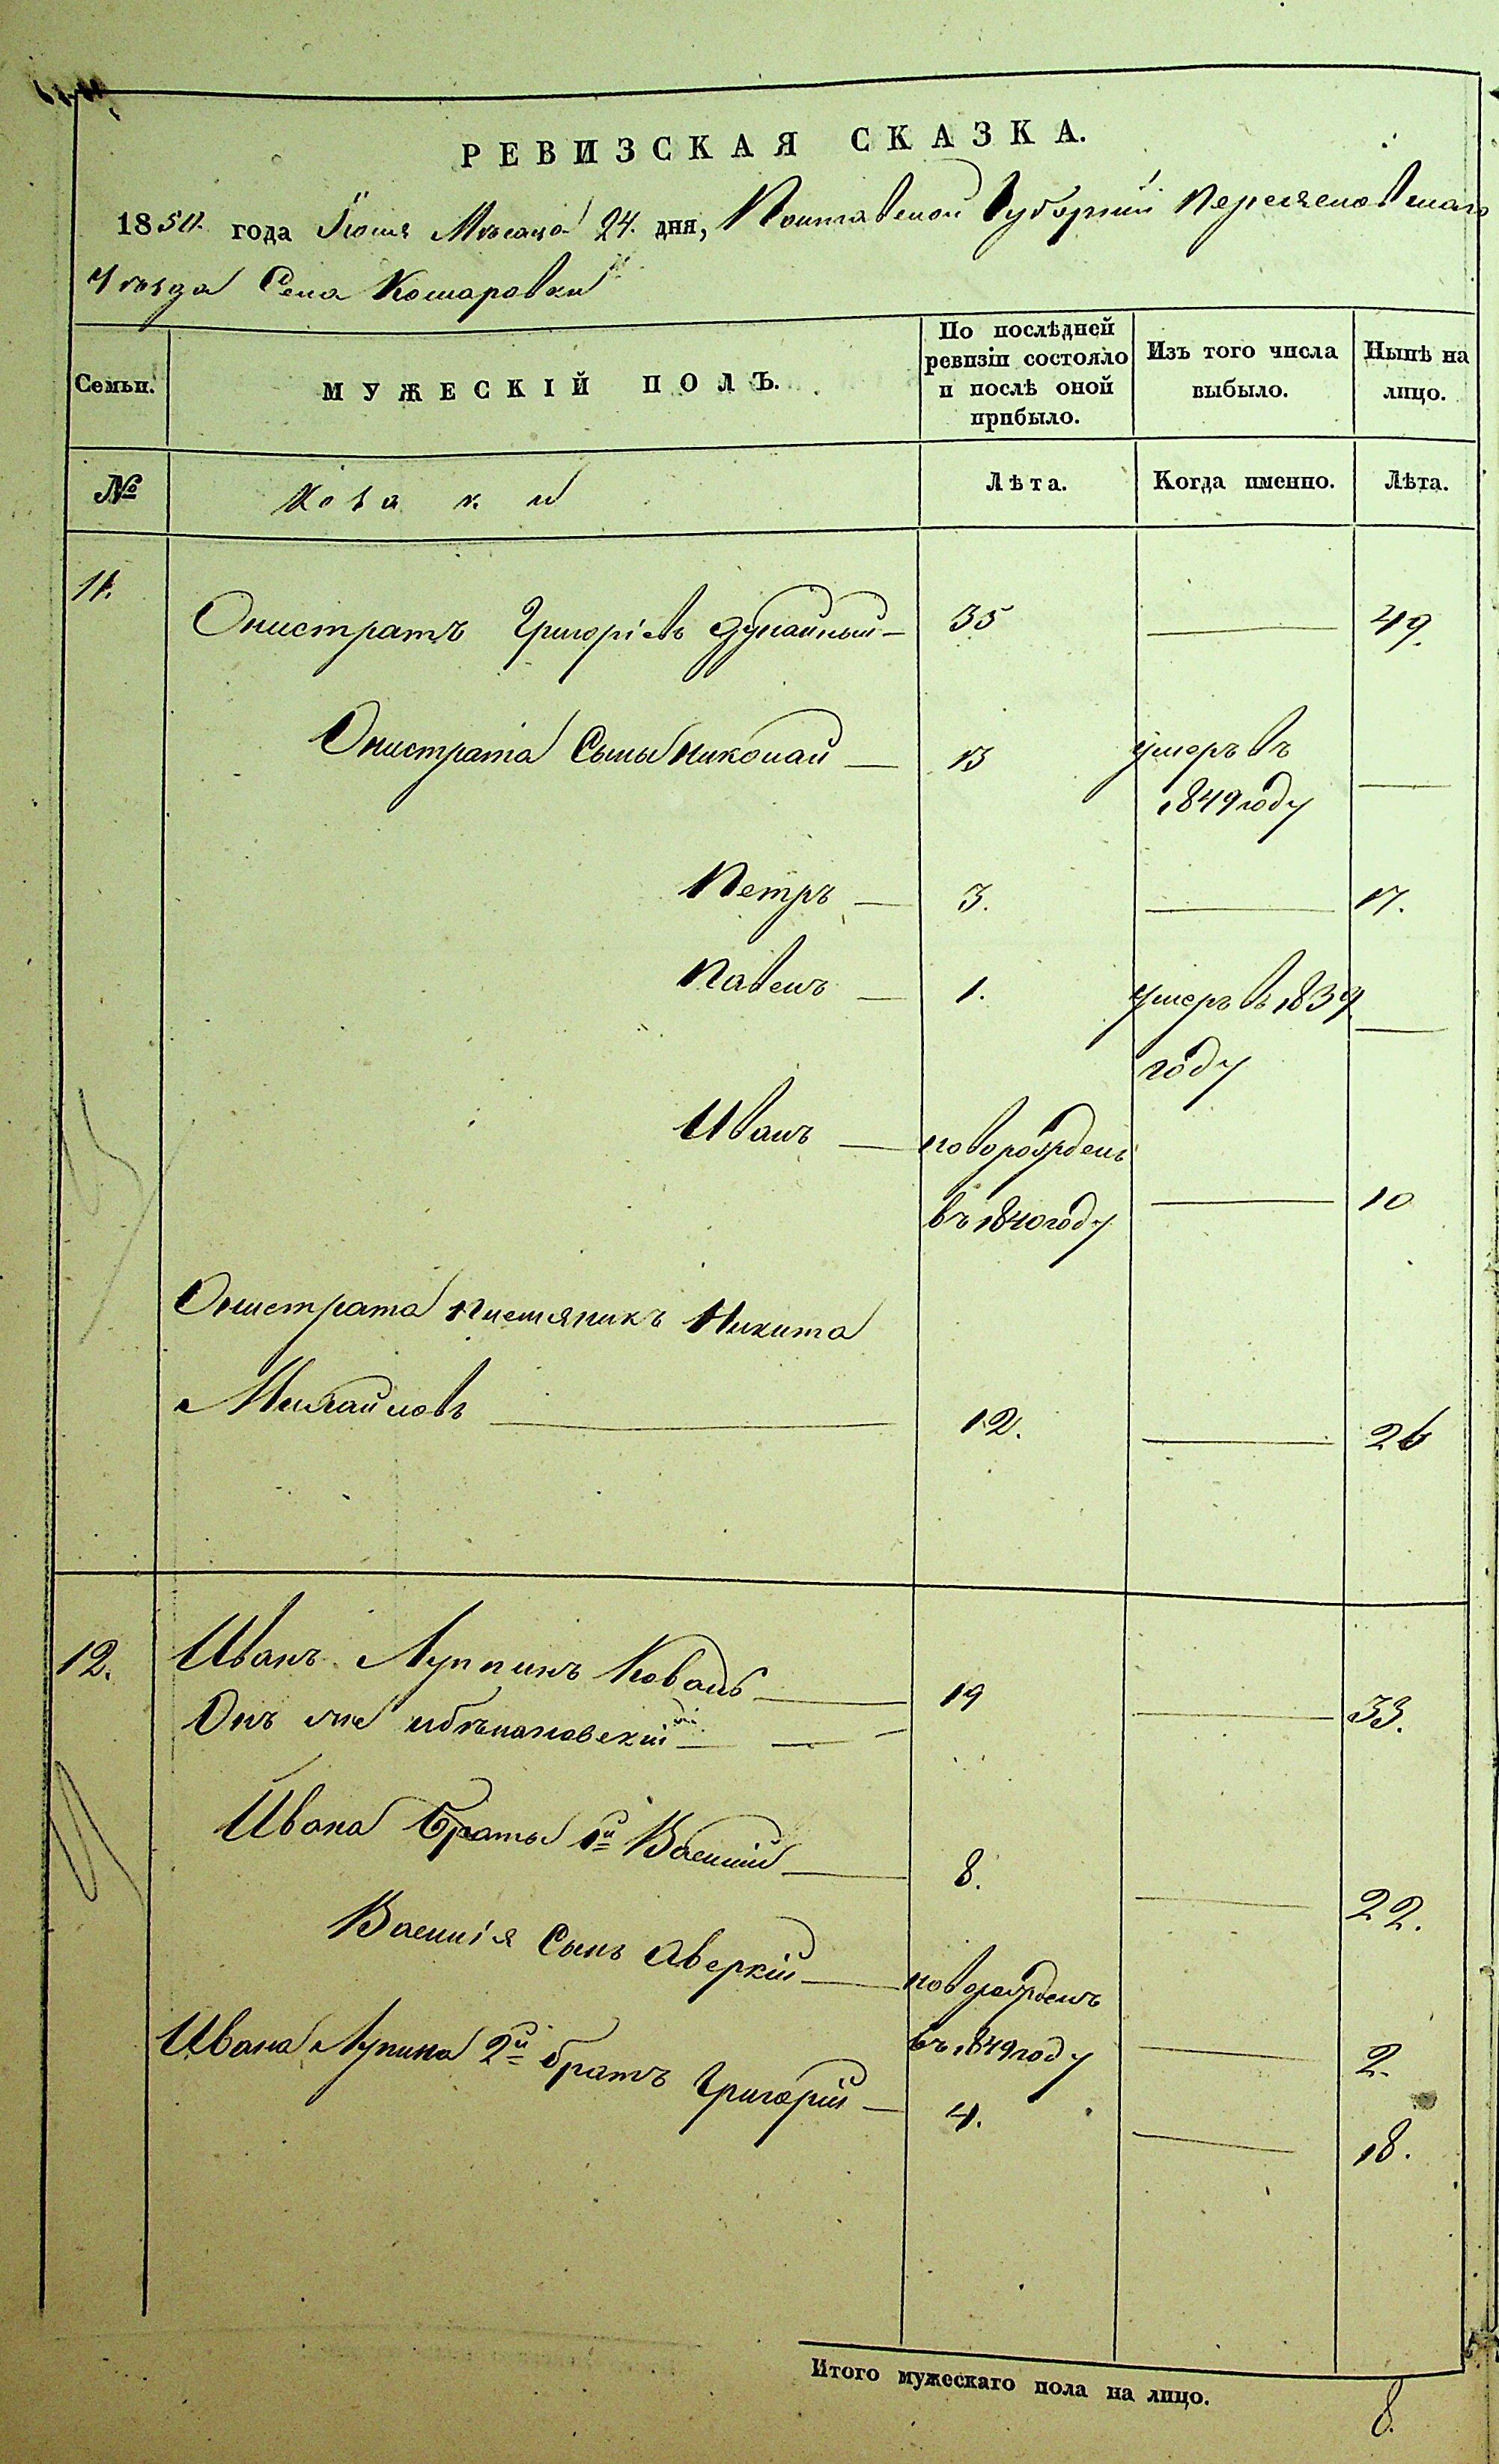 РЕВИЗСКАЯ СКАЗКА.
1850. года Іюня Мѣсяца 24. дня, Полтавской Губерніи Переяславскаго
Уѣзда Села Комаровки
Семьи.
МУЖЕСКІЙ ПОЛЪ.
По послѣдней ревизіи состояло и послѣ оной прибыло.
Изъ того числа выбыло.
Нынѣ на лицо.
№
Козаки
Лѣта.
Когда именно.
Лѣта.
11.
Онистратъ Григоріевъ Дунайный — 35 — 49.
Онистрата Сыны Николай — 13 умеръ въ 1849 году —
Петръ — 3. — 17.
Павелъ — 1. умеръ въ 1837 году —
Иванъ — новорожденъ
въ 1840 году — 10
Онистрата племяникъ Никита
Михайловъ — 12. — 26
12. Иванъ Луппинъ Коваль — 19 — 33.
Онъ же
Ивана братья 1й Василій — 8. — 22.
Василія Сынъ Аверкій — новорожденъ
въ 1849 году — 2.
Ивана Лупина 2й братъ Григорій — 4. — 18.
Итого мужескаго пола на лицо.
8.